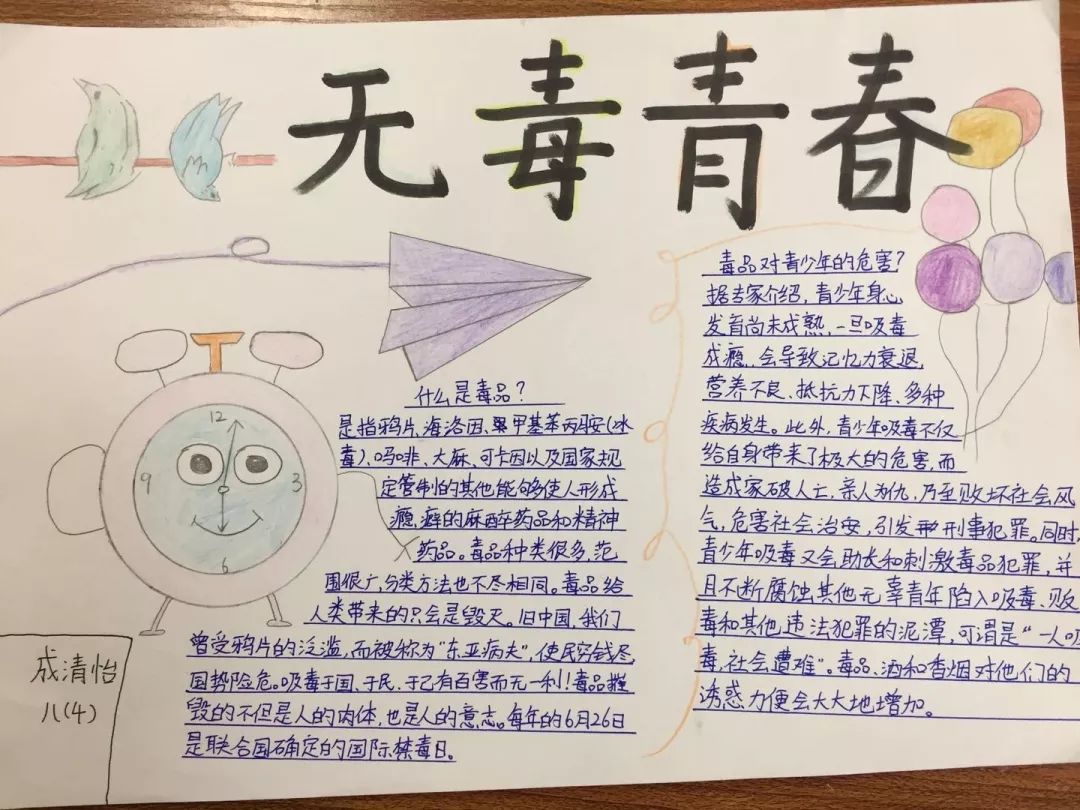 无毒青春
什么是毒品?
是指鸦片、海洛因、甲基苯丙胺(冰
毒)、吗啡、大麻、可卡因以及国家规
定管制的其他能够使人形成
瘾癖的麻醉药品和精神
药品。毒品种类很多,范
围很广,分类方法也不尽相同。毒品给
人类带来的只会是毁灭。旧中国,我们
曾受鸦片的泛滥,而被称为“东亚病夫”,使民穷钱尽,
国势险危。吸毒于国、于民、于己有百害而无一利!毒品摧
毁的不但是人的肉体,也是人的意志。每年的6月26日
是联合国确定的国际禁毒日。
毒品对青少年的危害?
据专家介绍,青少年身心
发育尚未成熟,一旦吸毒
成瘾,会导致记忆力衰退,
营养不良、抵抗力下降、多种
疾病发生。此外,青少年吸毒不仅
给自身带来了极大的危害,而
造成家破人亡,亲人为仇,乃至败坏社会风
气,危害社会治安,引发刑事犯罪。同时,
青少年吸毒又会助长和刺激毒品犯罪,并
且不断腐蚀其他无辜青年陷入吸毒、贩
毒和其他违法犯罪的泥潭,可谓是“一人吸
毒,社会遭难”。毒品、酒和香烟对他们的
诱惑力便会大大地增加。
12
3
6
9
成清怡
八(4)